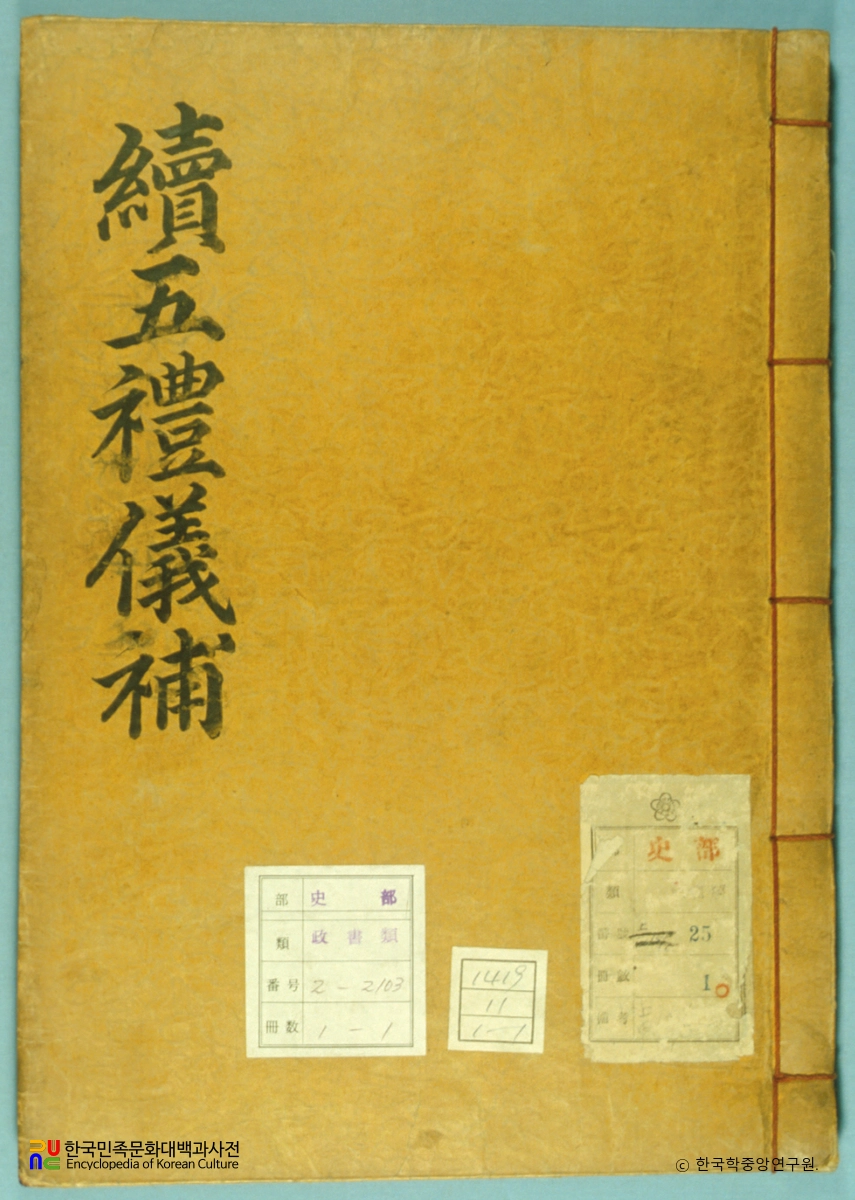 續五禮儀補
部 史 部
類 政書類
番号 2-2103
冊数 1-1
1419
11
1-1
史部
類
25
1
한국민족문화대백과사전
Encyclopedia of Korean Culture
© 한국학중앙연구원.